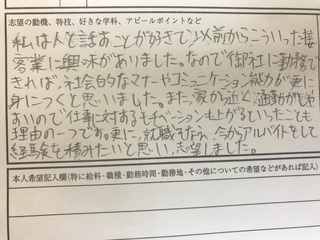 志望の動機、特技、好きな学科、アピールポイントなど
私は人と話すことが好きで以前からこういった接
客業に興味がありました。なので御社に勤務で
きれば、社会的なマナーやコミュニケーション能力が更に
身につくと思いました。また、家から近く、通勤がしや
すいので仕事に対するモチベーションも上がるといったことも
理由の一つです。更に、就職するなら、今からアルバイトをして
経験を積みたいと思い、志望しました。
本人希望記入欄(特に給料・職種・勤務時間・勤務地・その他についての希望などがあれば記入)